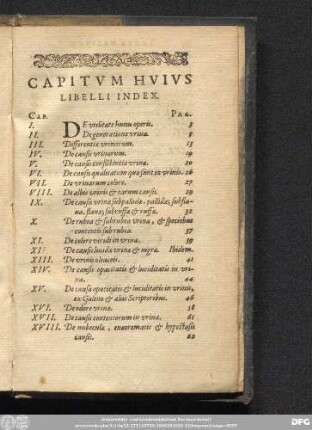 CAPITVM HVIVS
LIBELLI INDEX.
CAP. PAG.
I. DE vtilitate huius operis. 3
II. De generatione vrinæ. 8
III. Differentiæ vrinarum. 13
IV. De causis vrinarum. 19
V. De causis consistentiæ vrinæ. 20
VI. De causis qualitatum quæ sunt in vrinis. 26
VII. De vrinarum colore. 27
VIII. De albis vrinis & earum causis. 29
IX. De causis vrinæ subpallidæ, pallidæ, subflauæ, flauæ, subruffæ & ruffæ. 32
X. De rubea & subrubea vrina, & speciebus contentis sub rubea. 37
XI. De colore viridi in vrina. 39
XII. De causis liuidæ vrinæ & nigræ. Ibidem.
XIII. De vrinis oleaceis. 41
XIV. De causis opacitatis & luciditatis in vrina. 44
XV. De causa opacitatis & luciditatis in vrinis, ex Galeno & aliis Scriptoribus. 46
XVI. De odore vrinæ. 58
XVII. De causis contentorum in vrina. 61
XVIII. De nubecula, enæoremate & hypostasis causis. 62